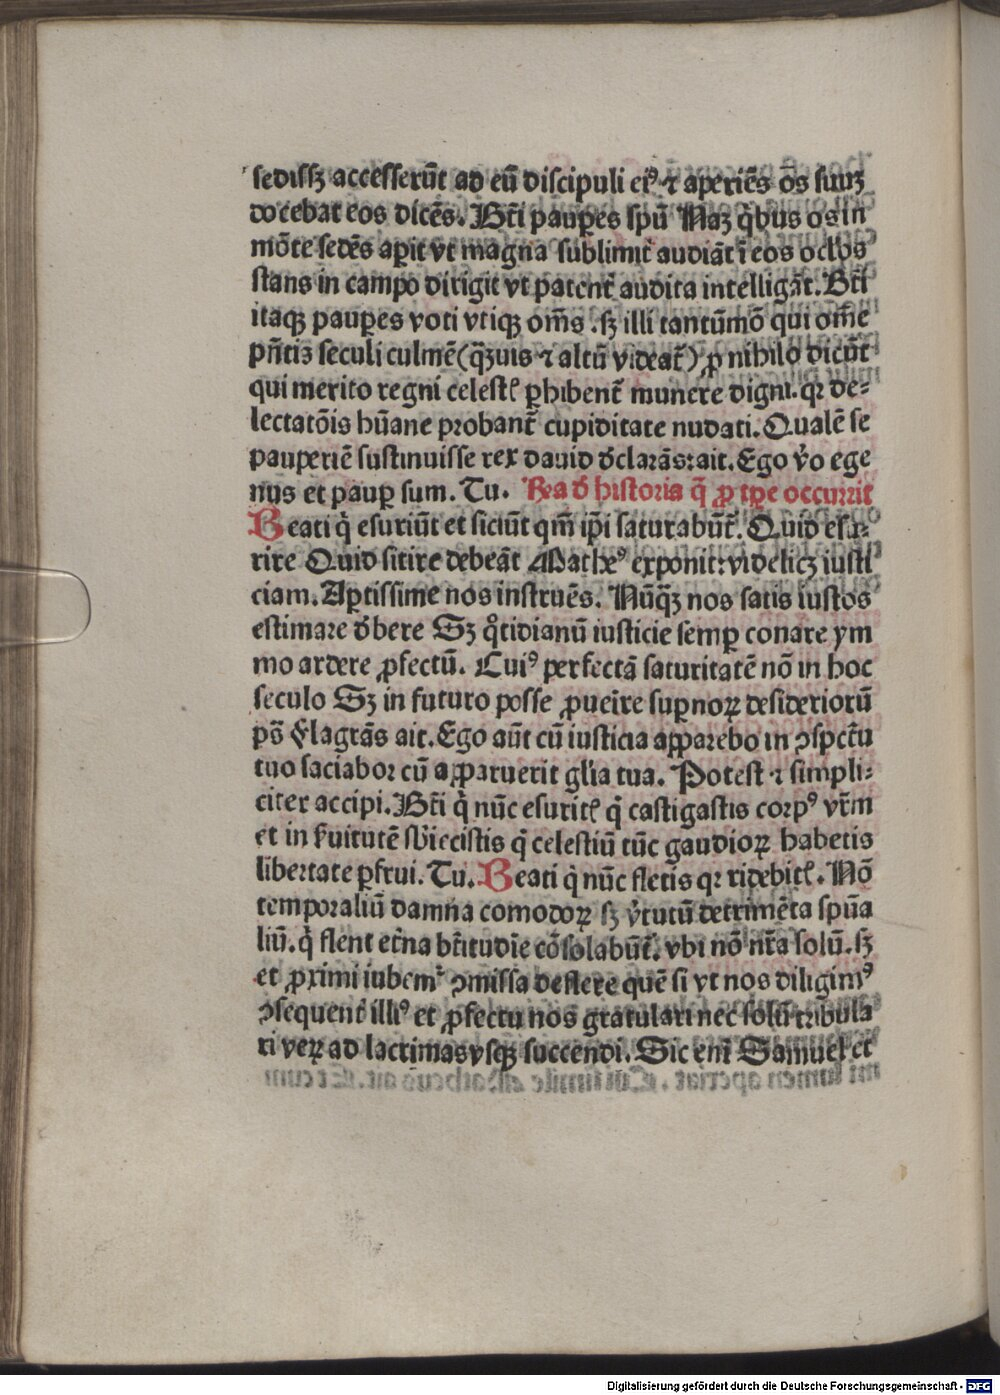 sedissꝫ accesserūt ad eū discipuli eiꝰ ⁊ aperiēs os suuꝫ
docebat eos dicēs. Bt̄i paup̲es spū Naꝫ q̇bus os in
mōte sedēs ap̲it vt magna sublimit᷑ audiāt ī eos oc̄los
stans in campo dirigit vt patent᷑ audita intelligāt. Bt̄i
itaqꝫ paup̲es voti vtiqꝫ om̄s .sꝫ illi tantūmō qui om̄e
pn̄tis seculi culmē (q̄ꝫuis ⁊ altū videat᷑) ꝓ nihilo dicūt
qui merito regni celestꝭ p̲hibent᷑ munere digni. qꝛ de⸗
lectatōis hūane probant᷑ cupiditate nudati. Qualē se
pauperiē sustinuisse rex dauid d̓clarās: ait. Ego v̓o ege
nus et paup̲ sum. Tu. Rea d̓ historia q̄ ꝓ tp̲e occurrit
Beati q̇ esuriūt et siciūt qm̄ ip̄i saturabūt᷑. Quid esu⸗
rire Quid sitire debeāt Matheꝰ exponit: videlicꝫ iusti
ciam. Ap̲tissime nos instruēs. Nūq̄ꝫ nos satis iustos
estimare d̓bere Sꝫ q̊tidianū iusticie semp̲ conare ym
mo ardere ꝓfectū. Cuiꝰ perfectā saturitatē nō in hoc
seculo Sꝫ in futuro posse ꝓueīre sup̲noꝝ desideriorū
ps̄ flagrās ait. Ego aūt cū iusticia apparebo in ꝯspectu
tuo saciabor cū apparuerit gl̓ia tua. Potest ⁊ simpli⸗
citer accipi. Bt̄i q̇ nūc esuritꝭ q̇ castigastis corpꝰ vr̄m
et in s̓uitutē sb̓iecistis q̇ celestiū tūc gaudioꝝ habetis
libertate p̲frui. Tu. Beati q̇ nūc fletis qꝛ ridebitꝭ. Nō
temporaliū damna comodoꝝ sꝫ v̓tutū detrimēta spūa
liū. q̇ flent et̓na bt̄itudīe cōsolabūt᷑. vbi nō nr̄a solū. sꝫ
et ꝓximi iubem᷑ ꝯmissa deflere quē si vt nos diligimꝰ
ꝯsequent᷑ illiꝰ et ꝓfectu nos gratulari nec solū tribula
ri veꝝ ad lacrimas vsqꝫ succendi. Sic enī Samuel et
Digitalisierung gefördert durch die Deutsche Forschungsgemeinschaft - DFG